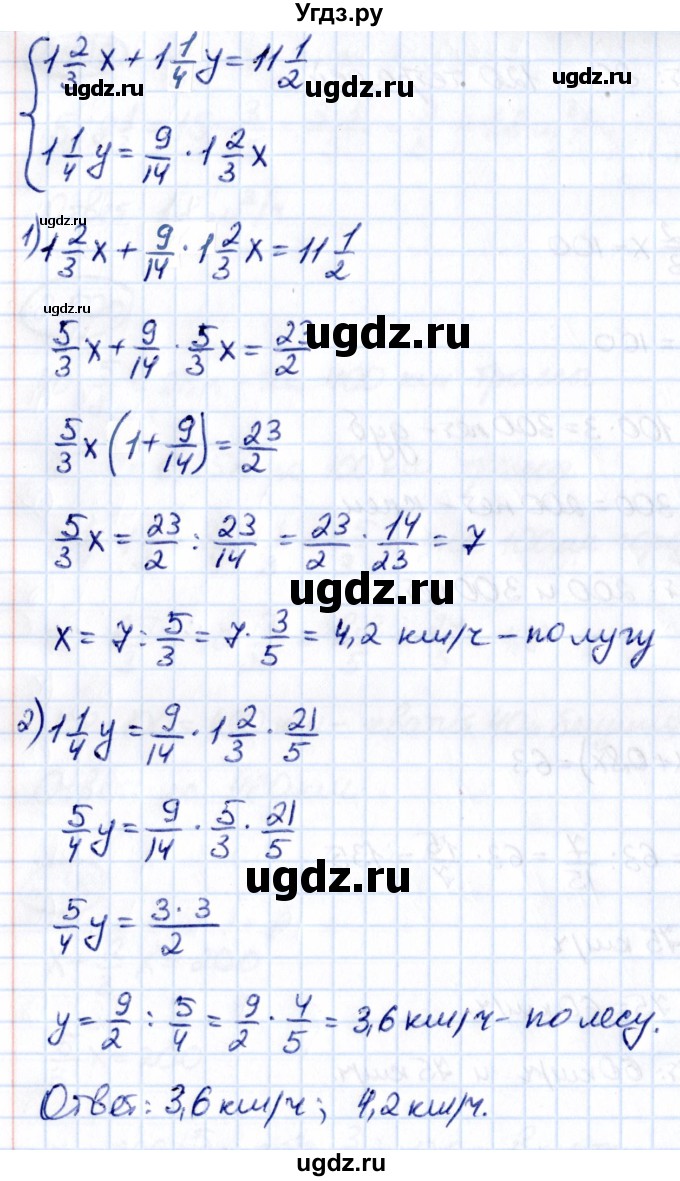 Угдз.ру
{1 2/3 x + 1 1/4 y = 11 1/2
ugdz.ru ugdz.ru ugdz.ru
1 1/4 y = 9/14 · 1 2/3 x
ugdz.ru
1) 1 2/3 x + 9/14 · 1 2/3 x = 11 1/2
ugdz.ru
5/3 x + 9/14 · 5/3 x = 23/2
ugdz.ru
5/3 x (1 + 9/14) = 23/2
5/3 x = 23/2 : 23/14 = 23/2 · 14/23 = 7
ugdz.ru
x = 7 : 5/3 = 7 · 3/5 = 4,2 км/ч – по лугу
2) 1 1/4 y = 9/14 · 1 2/3 · 21/5
5/4 y = 9/14 · 5/3 · 21/5
ugdz.ru
5/4 y = 3·3/2
y = 9/2 : 5/4 = 9/2 · 4/5 = 3,6 км/ч – по лесу.
Ответ: 3,6 км/ч; 4,2 км/ч.
ugdz.ru